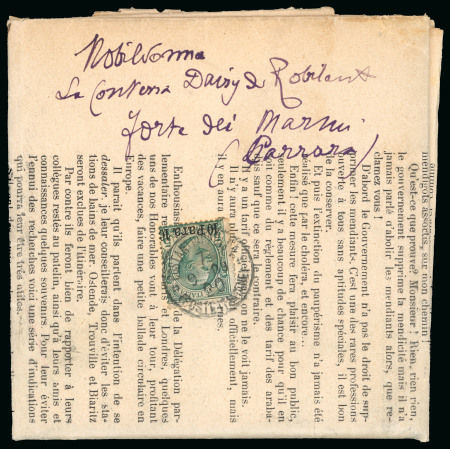 Nobildonna
La Contessa Daisy de Robilant
Forte dei Marmi
(Carrara)
10 Para 10
mendigots associés, sur mon chemin!
Qu'est-ce que prouve? Monsieur! Rien, rien rien,
le gouvernement supprime la mendicité mais il n'a
jamais parlé d'abolir les mendiants alors, que re-
clamez vous!
D'abord le Gouvernement n'a pas le droit de sup-
primer les mendiants. C'est une des rares professions
ouverte à tous sans aptitudes spéciales, il est bon
de la conserver.
Et puis l'extinction du paupérisme n'a jamais été
causé que par le choléra, et encore...
Enfin cette mesure fera plaisir au bon public,
seulement il y a beaucoup de chance pour qu'il en
comme du réglement et des tarif des araba-
sauf que ce sera le contraire.
Il y a un tarif officiel
on ne le voit jamais.
Il n'y aura plus de
officiellement, mais
il y en aura
Enthousias
de la Délégation par-
lementaire
et Londres, quelques
uns de nos Honorables
à leur tour, profitant
des vacances, faire une petite ballade circulaire en
Europe.
Il parait qu'ils partent dans l'intention de se
dessaler, je leur conseillerais donc d'éviter les sta-
tions de bains de mer. Ostende, Trouville et Biaritz
seront exclues de l'itinéraire.
Par contre ils feront bien de rapporter à leurs
collègues restés au patelin, ainsi qu'à leurs amis et
connaissances quelques souvenirs, pour leur éviter
l'ennui des recherches voici une série d'indications
qui pourra leur être très utiles.